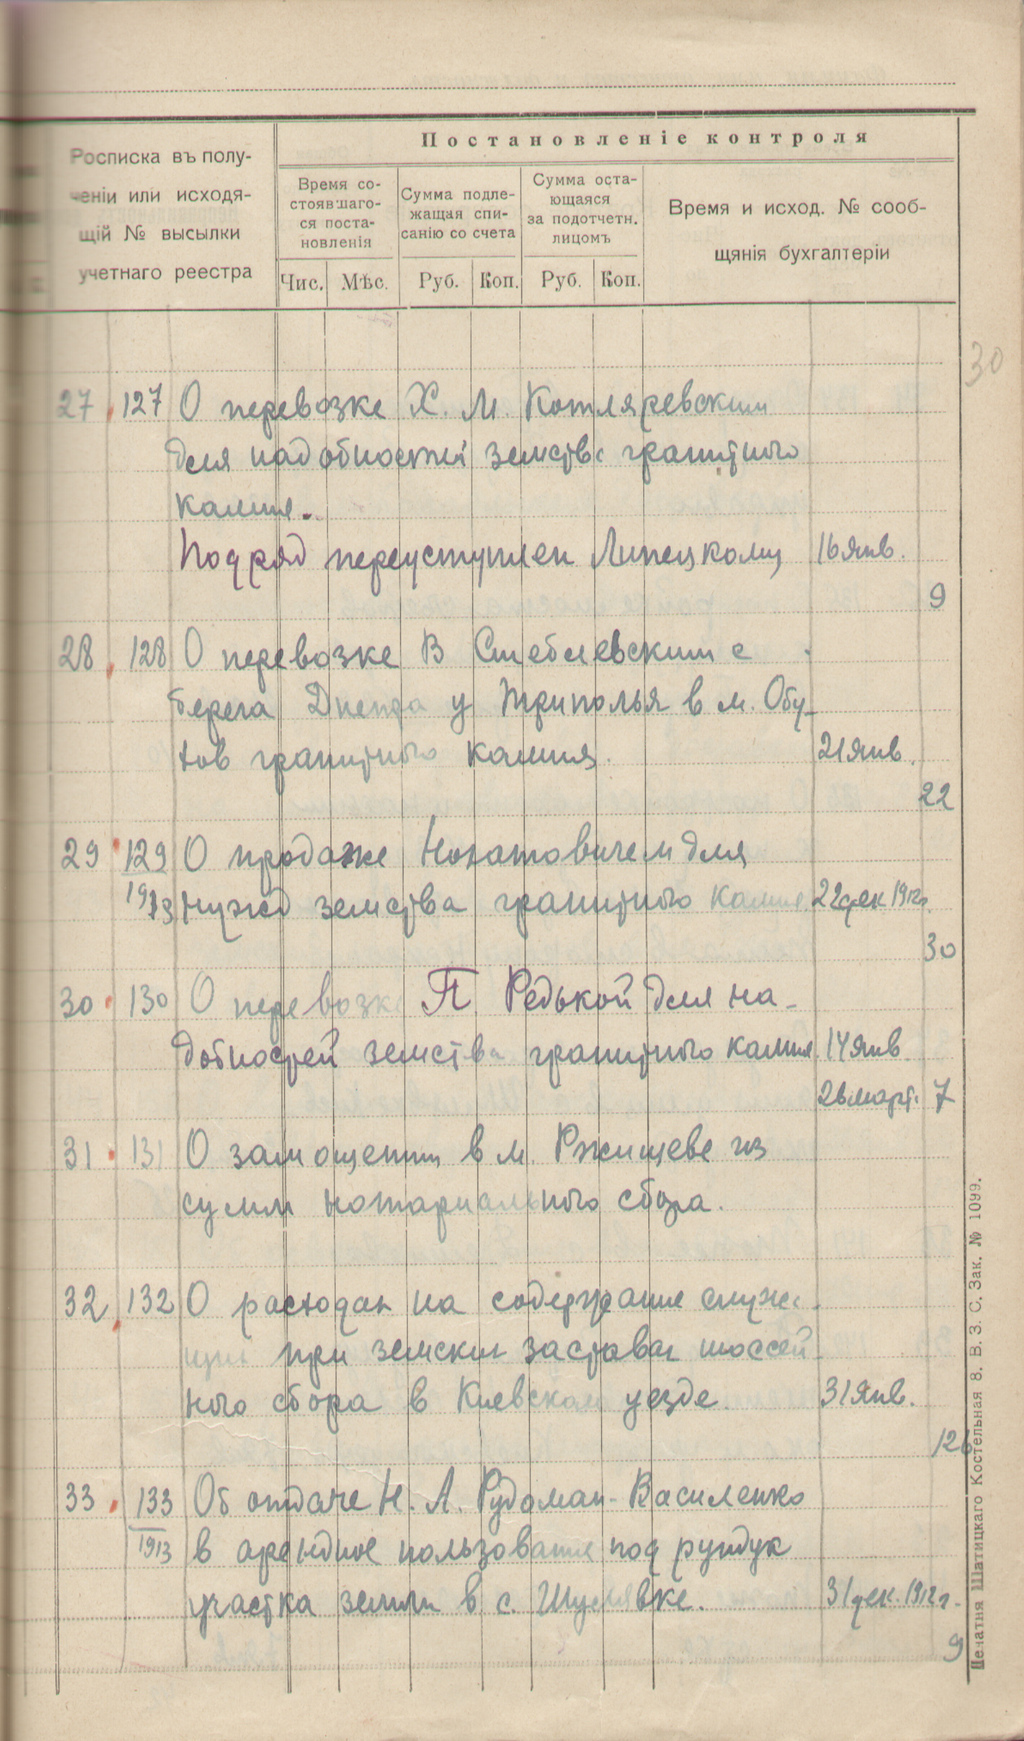 Постановленіе контроля
Росписка въ полу-
ченіи или исходя-
щій № высылки
учетнаго реестра
Время со-
стоявшаго-
ся поста-
новленія
Сумма подле-
жащая спи-
санію со счета
Сумма оста-
ющаяся
за подотчетн.
лицомъ
Время и исход. № сооб-
щянія бухгалтеріи
Чис. Мѣс. Руб. Коп. Руб. Коп.
30
27 127 О перевозке Х. М. Котляревским
для надобностей земства гранитного
камня.
Подряд переуступлен Липецкому 16 янв.
9
28 128 О перевозке В Стеблевским с
берега Днепра у Триполья в м. Обу-
хов гранитного камня. 21 янв.
22
29 129 О продаже Нохатовичем для
1913 нужд земства гранитного камня 22 дек 1912 г.
30
30 130 О перевозке П. Редькой для на-
добностей земства гранитного камня 14 янв
26 март. 7
31 131 О замощении в м. Ржищеве из
сумм нотариального сбора.
32 132 О расходах на содержание служа-
щих при земских заставах шоссей-
ного сбора в Киевском уезде. 31 янв.
126
33 133 Об отдаче Н. А. Рудоман-Василенко
1913 в арендное пользование под рундук
участка земли в с. Шулявке. 31 дек. 1912 г.
9
Печатня Шатицкаго Костельная 8. В. З. С. Зак. № 1099.